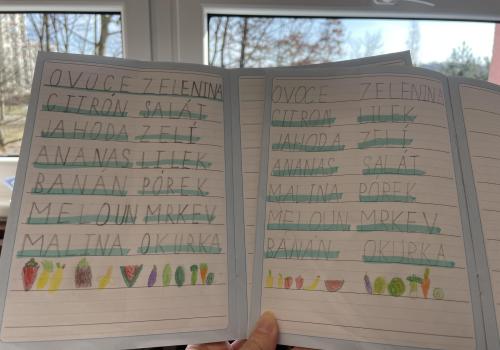 OVOCE ZELENINA
CITRÓN SALÁT
JAHODA ZELÍ
ANANAS LILEK
BANÁN PÓREK
MELOUN MRKEV
MALINA OKURKA
OVOCE ZELENINA
CITRON LILEK
JAHODA ZELÍ
ANANAS SALÁT
MALINA PÓREK
MELOUN MRKEV
BANÁN OKURKA